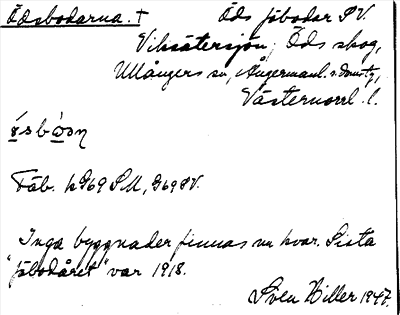 Ödsbodarna. † Öds fäbodar SV.
Vilisätersjön, Öds skog,
Ullångers sn, Ångermanl. s. domstg,
Västernorrl. l.
Fäb.
Inga byggnader finnas nu kvar. Sista
"fäbodåret" var 1918.
Sven Hiller 1947.